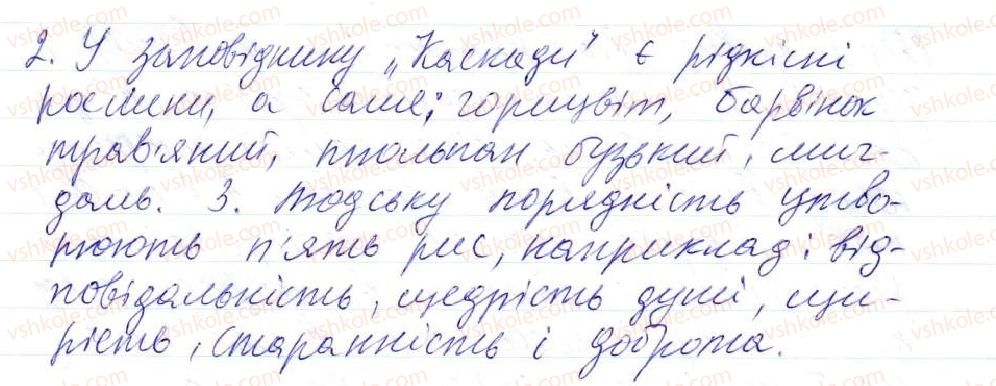 2. У заповіднику „Каскади" є рідкісні
рослини, а саме: горицвіт, барвінок
трав'яний, тюльпан бузький, миг-
даль. 3. Людську порядність утво-
рюють п'ять рис, наприклад: від-
повідальність, щедрість душі, щи-
рість, старанність і доброта.